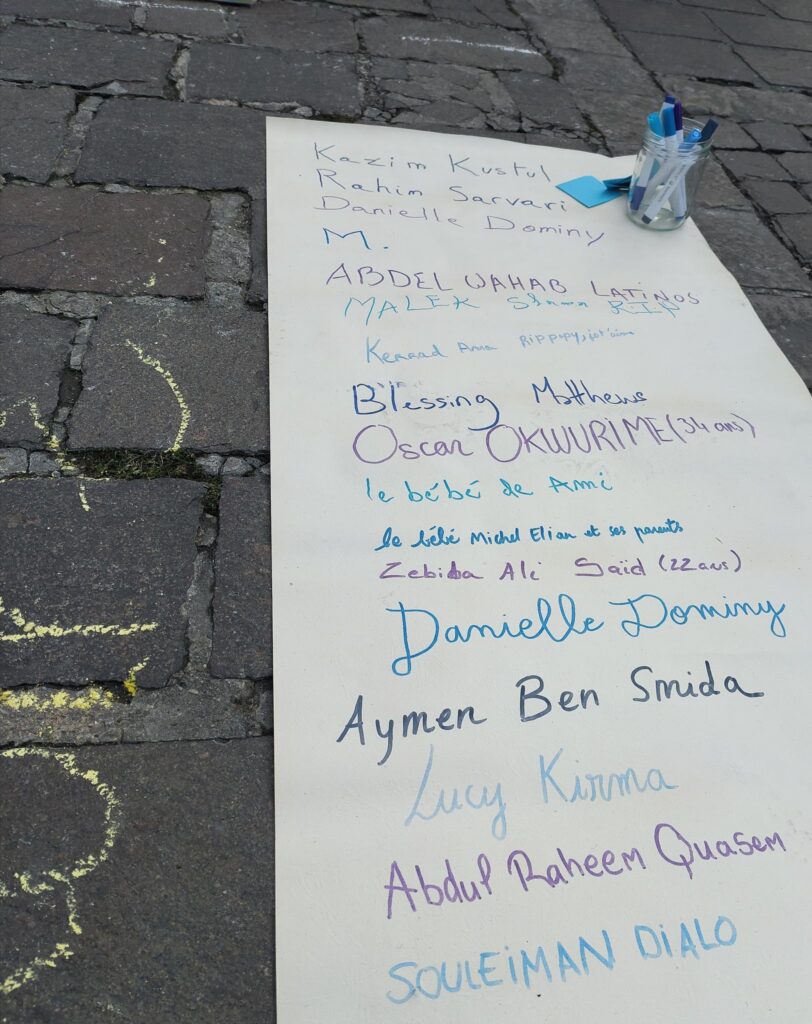 Kazim Kustul
Rahim Sarvari
Danielle Dominy
M.
ABDEL WAHAB LATINOS
MALEK RIP
Blessing Matthews
Oscar OKWURIME (34 ans)
le bébé de Ami
le bébé Michel Elian et ses parents
Zebiba Ali Saïd (22 ans)
Danielle Dominy
Aymen Ben Smida
Lucy Kirma
Abdul Raheem Quasem
SOULEIMAN DIALO